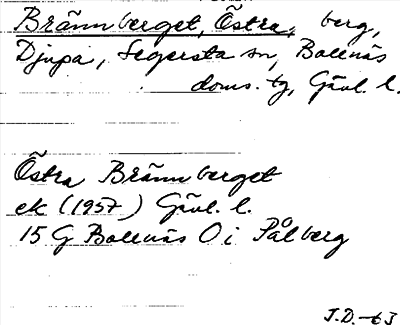 Brännberget, Östra, berg,
Djupa, Segersta sn, Bollnäs
doms. tg, Gävl. l.
Östra Brännberget
ek (1957) Gävl. l.
15 G Bollnäs O i Pålberg
J.D. -63